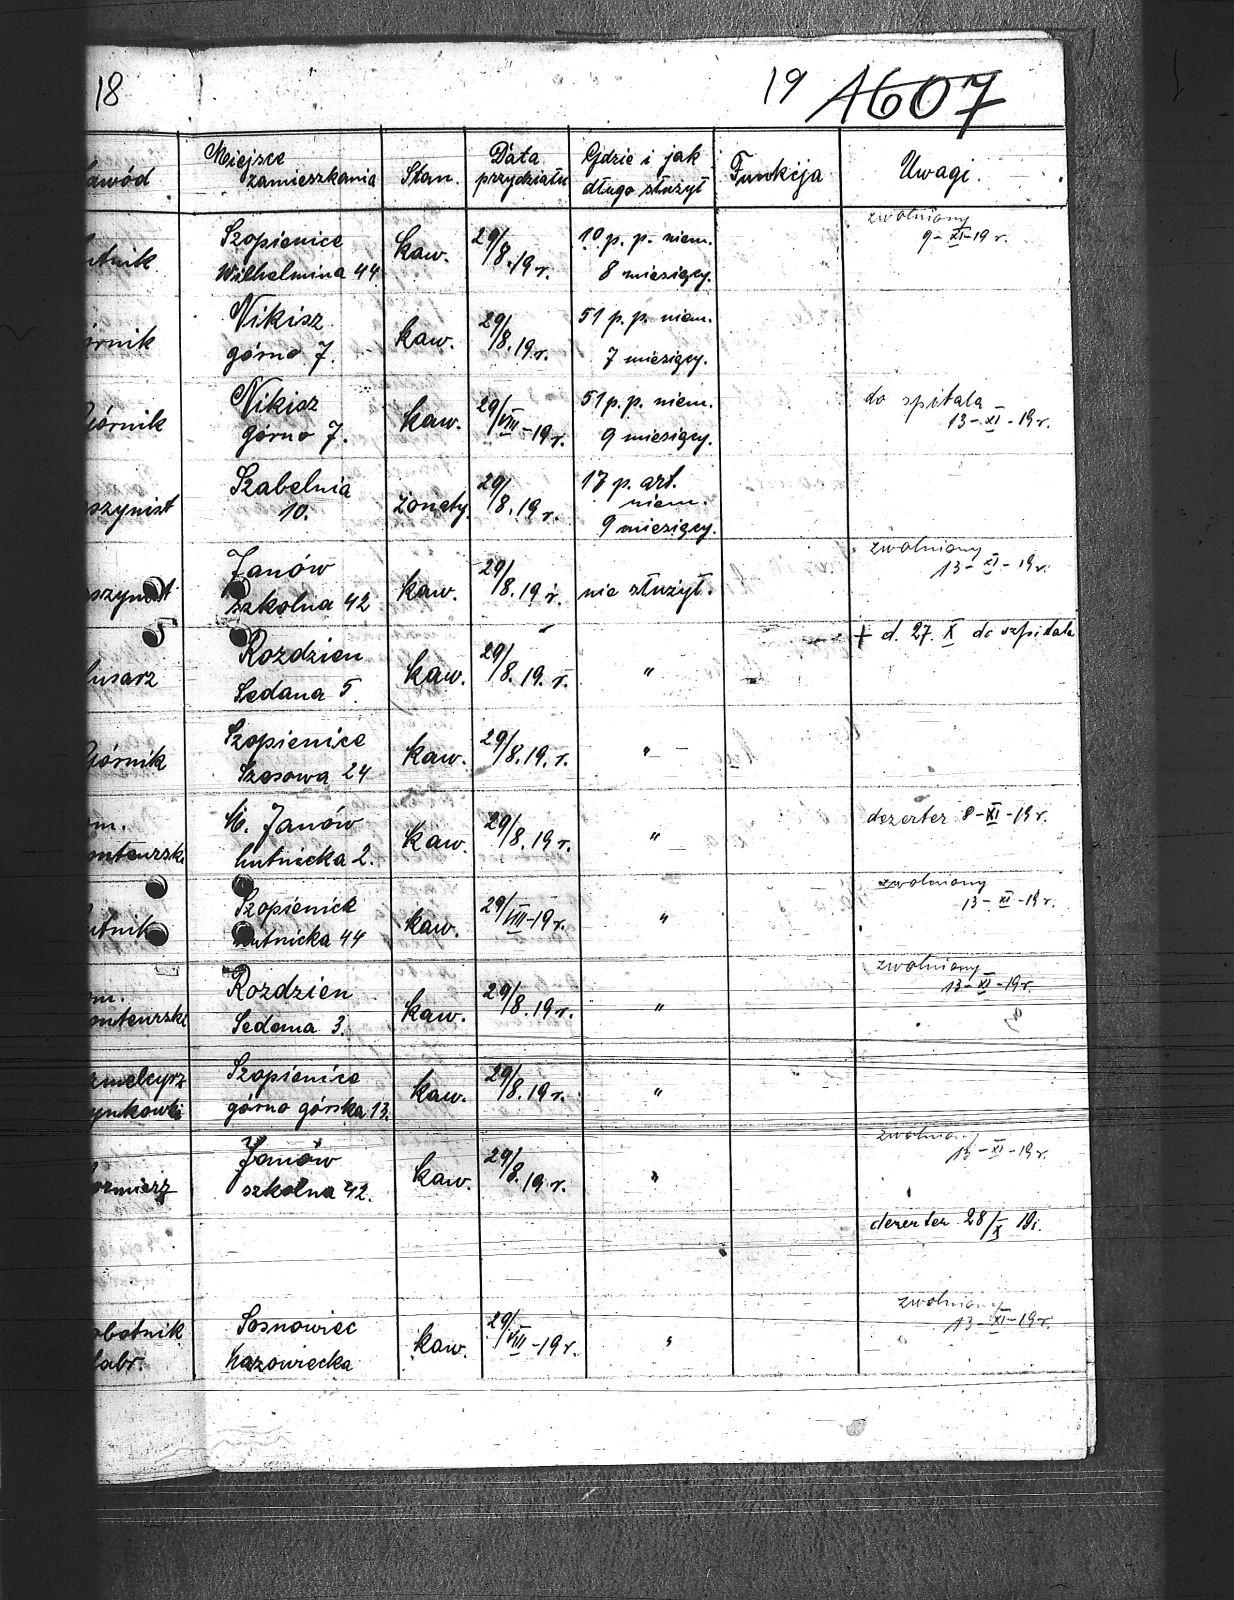 18
19 1607
awód Miejsce zamieszkania Stan. Data przydziału Gdzie i jak długo służył Funkcja Uwagi.
utnik Szopienice Wilhelmina 44 kaw. 29/8.19 r. 10 p. p. niem. 8 miesięcy. zwolniony 9-XI-19 r.
órnik Nikisz górno 7. kaw. 29/8.19 r. 51 p. p. niem. 7 miesięcy.
Górnik Nikisz górno 7. kaw. 29/VIII-19 r. 51 p. p. niem. 9 miesięcy. do spitala 13-XI-19 r.
szynist Szabelnia 10. żonaty. 29/8.19 r. 17 p. art. niem. 9 miesięcy.
szynist Janów szkolna 42 kaw. 29/8.19 r. nie służył. zwolniony 13-XI-19 r.
lusarz Rozdzien Sedana 5. kaw. 29/8.19. r. " + d. 27. X do szpitala
Górnik Szopienice Szosowa 24 kaw. 29/8.19. r. "
om. onteurski M. Janów hutnicka 2. kaw. 29/8.19 r. " dezerter 8-XI-19 r.
utnik Szopienice hutnicka 44 kaw. 29/VIII-19 r. " zwolniony 13-XI-19 r.
om. onteurski Rozdzien Sedana 3. kaw. 29/8.19 r. " zwolniony 13-XI-19 r.
zmelcyrz ynkowki Szopienice górno górska 13. kaw. 29/8.19 r. "
ormierz Janów szkolna 42. kaw. 29/8.19 r. " zwolnio 13-XI-19 r.
dezerter 28/X 19 r.
obotnik fabr. Sosnowiec Mazowiecka kaw. 29/VIII-19 r. " zwolniony 13-XI-19 r.